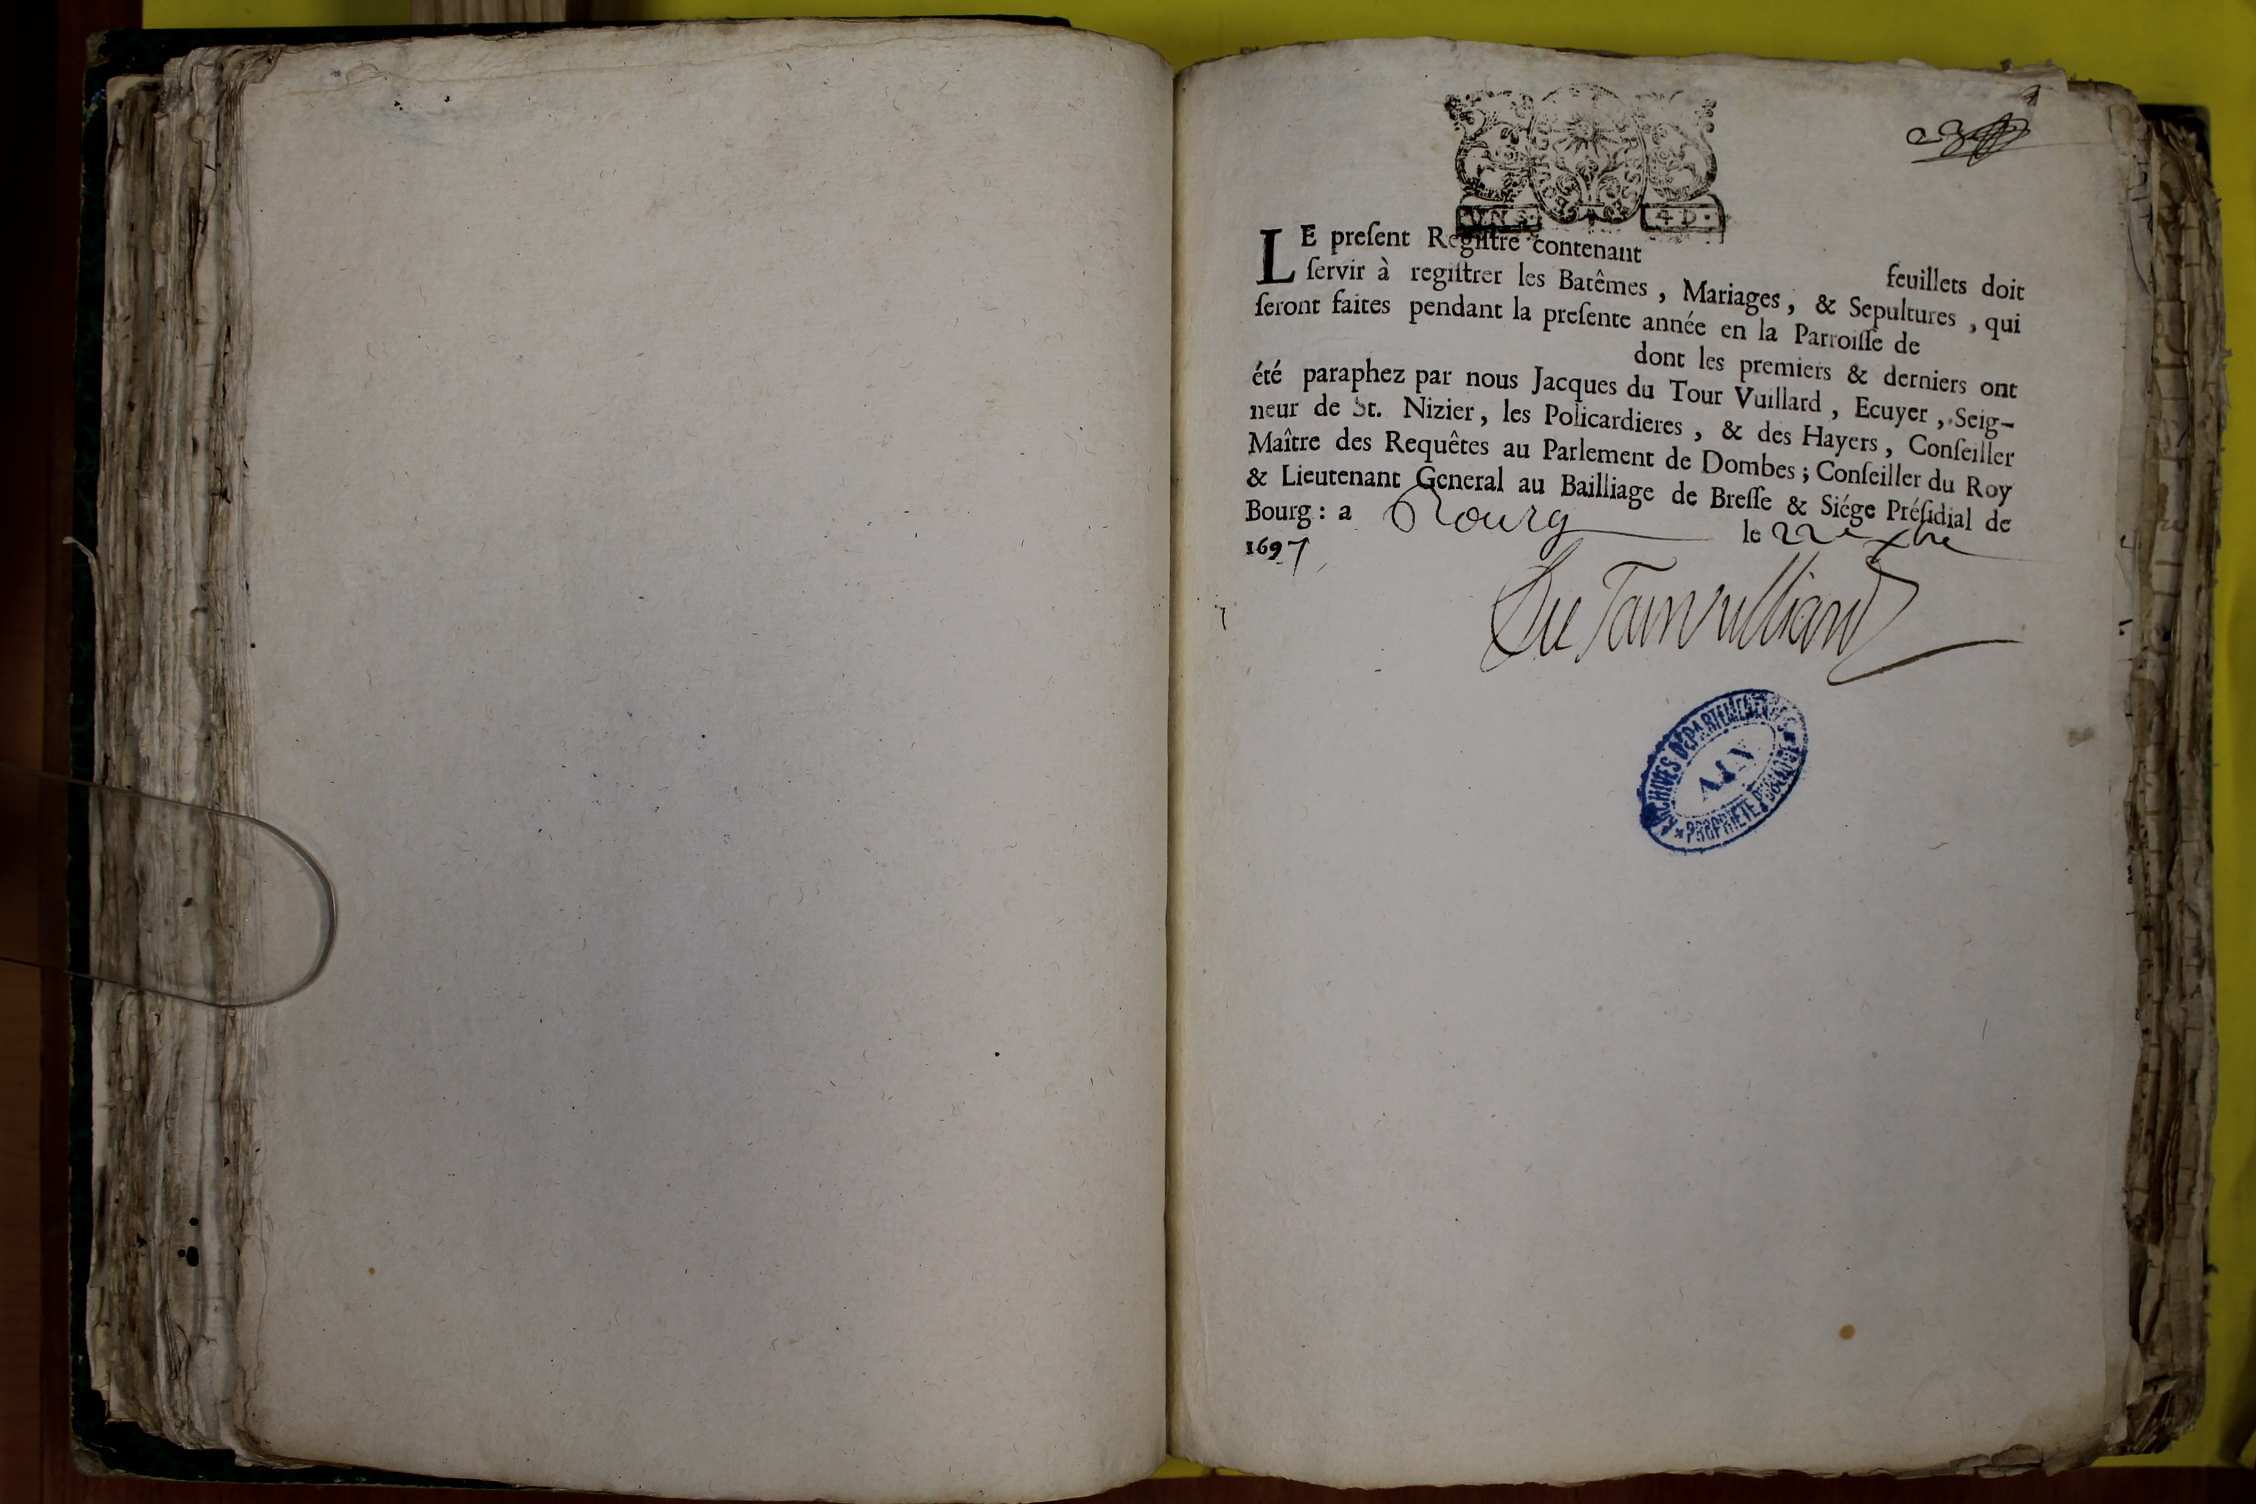 VN S. 4 D.
LE preſent Regiſtre contenant feuillets doit
ſervir à regiſtrer les Batêmes , Mariages , & Sepultures , qui
ſeront faites pendant la preſente année en la Parroiſſe de
dont les premiers & derniers ont
été paraphez par nous Jacques du Tour Vuillard , Ecuyer , Seig-
neur de St. Nizier , les Policardieres , & des Hayers , Conſeiller
Maître des Requêtes au Parlement de Dombes ; Conſeiller du Roy
& Lieutenant General au Bailliage de Breſſe & Siége Préſidial de
Bourg : a Bourg le 22e xbre
1697
ARCHIVES DÉPARTEMENTALES
AIN
PROPRIÉTÉ PUBLIQUE